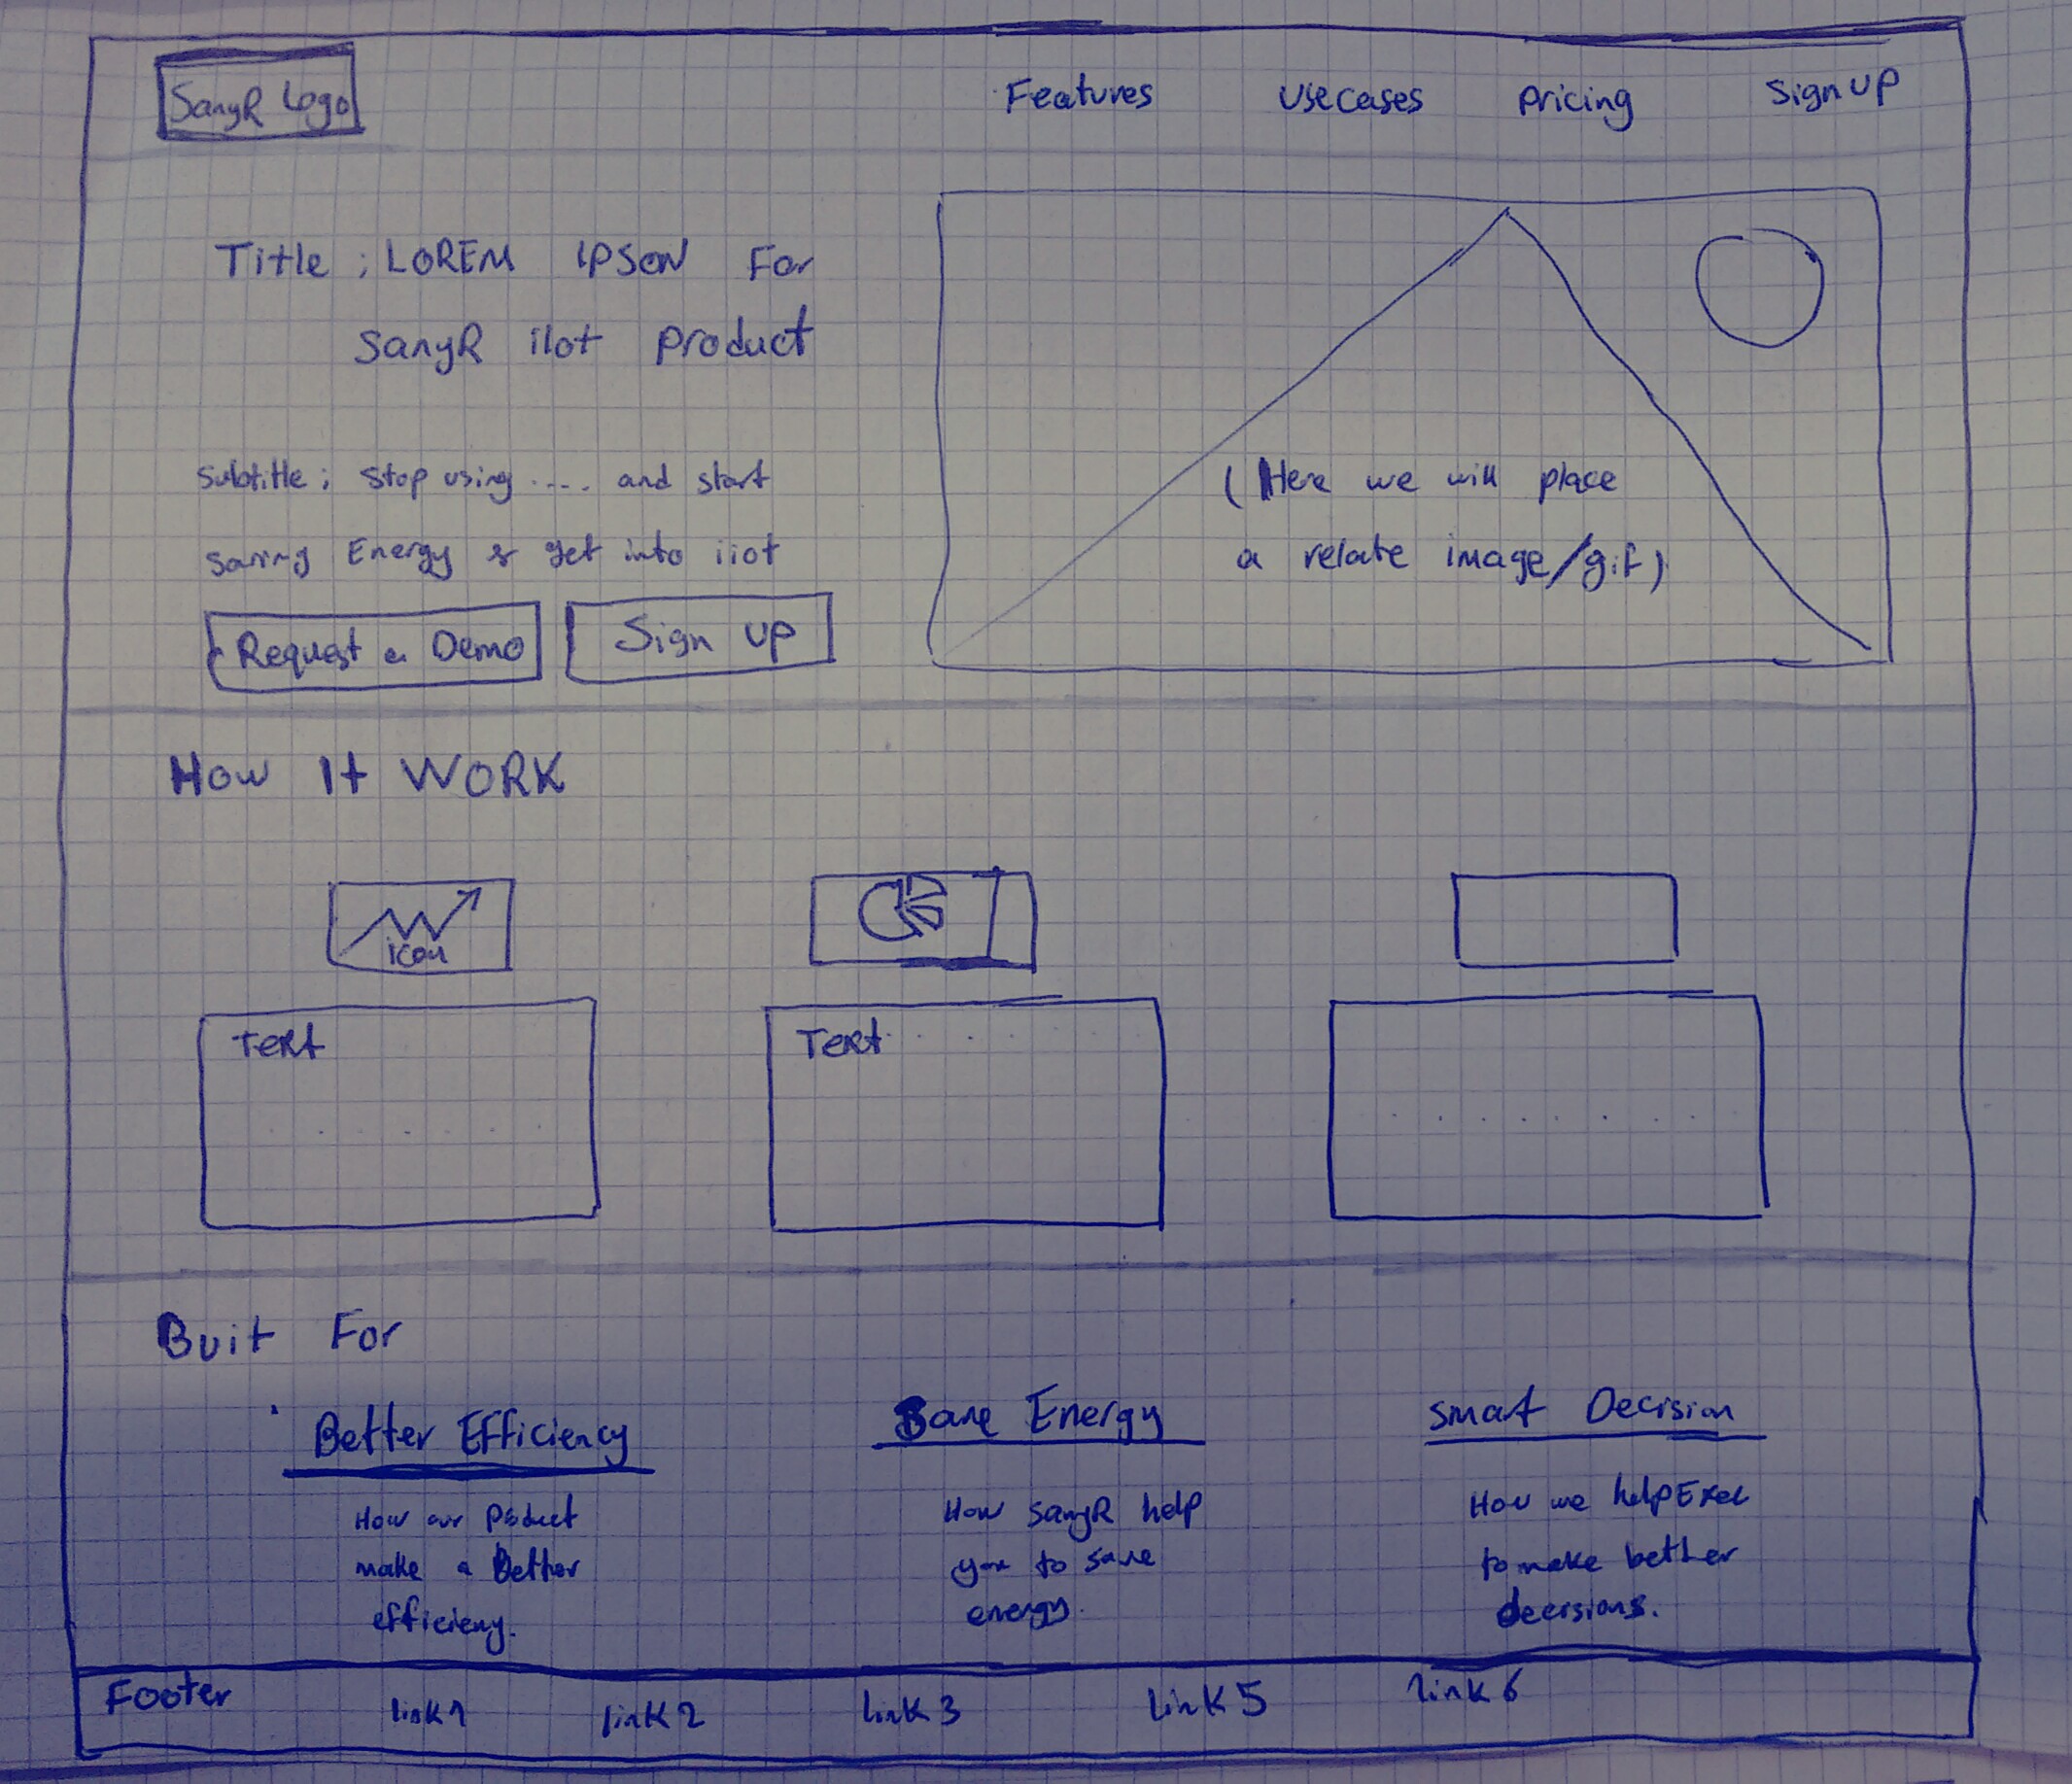 SanyR Logo
Features Usecases pricing Sign UP
Title ; LOREM IPSON For
SanyR iIot Product
Subtitle ; Stop using .... and start
saving Energy & get into iiot
Request a Demo Sign UP
(Here we will place
a relate image/gif)
How It WORK
icon
Text
Text
Buit For
Better Efficiency
How our Product
make a Better
efficieny.
Save Energy
How SanyR help
you to save
energy.
Smart Decision
How we help Exec
to make better
decisions.
Footer link1 link2 link3 link5 link6